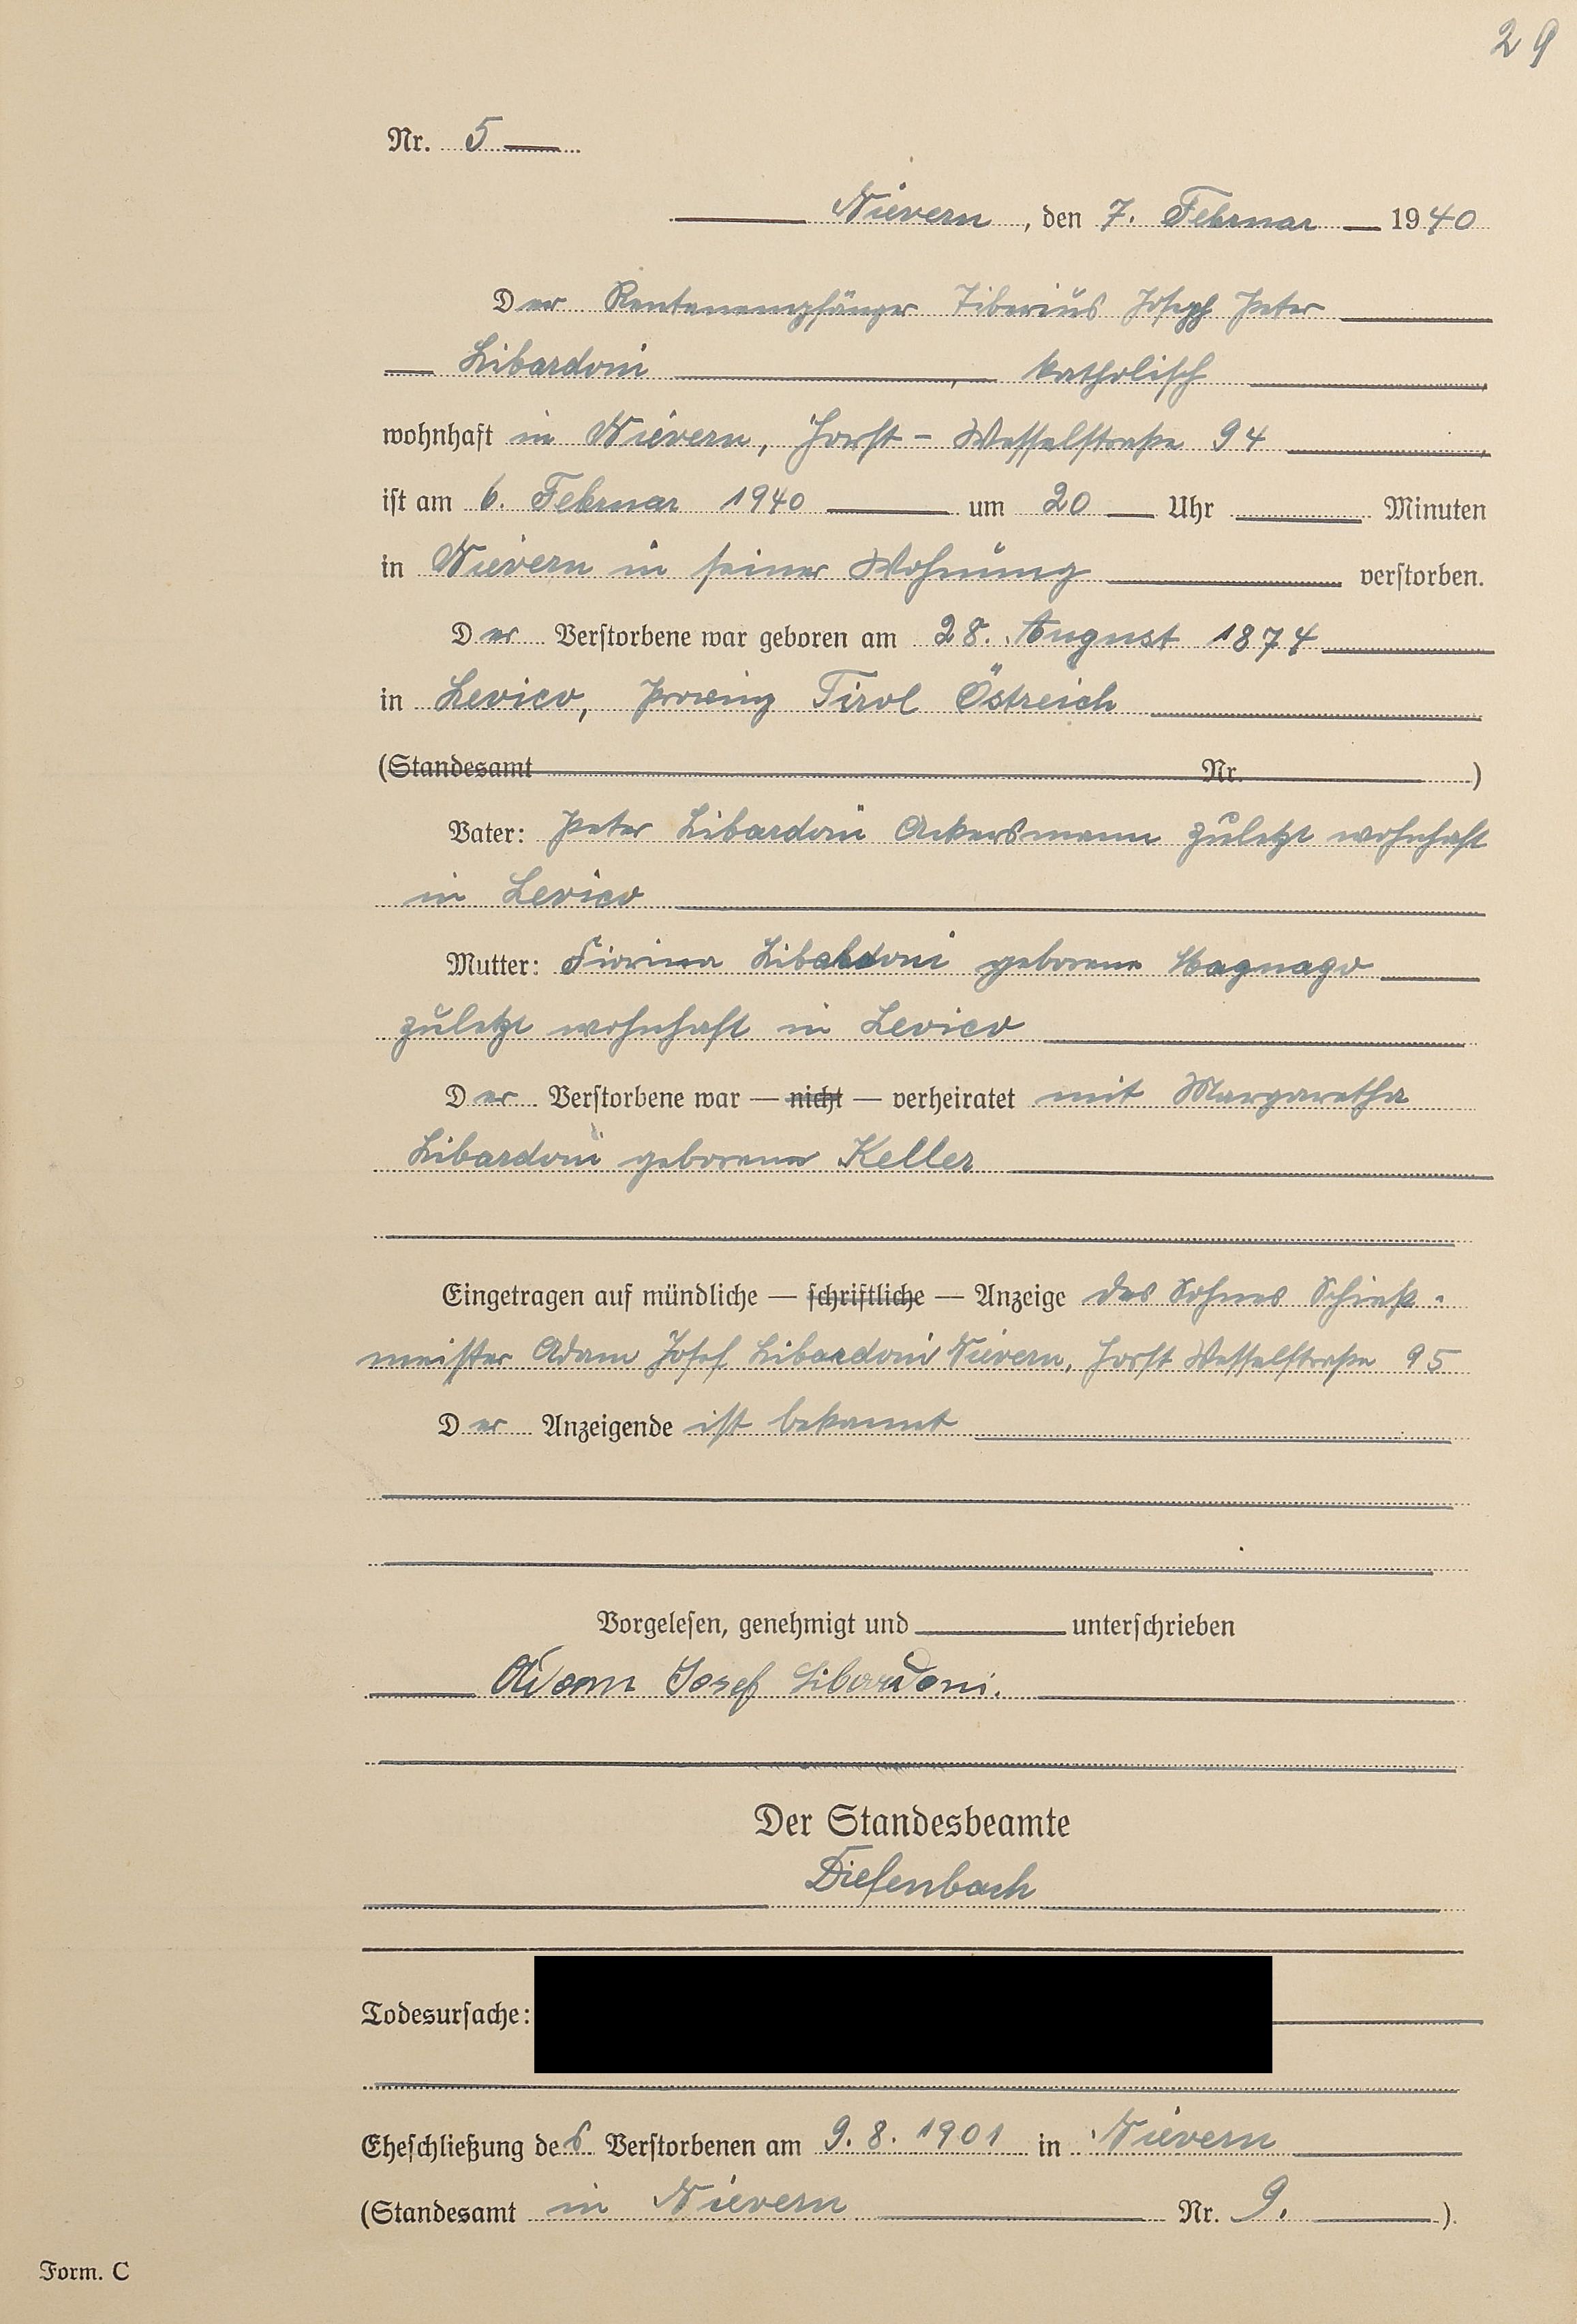 29
Nr. 5
Nievern, den 7. Februar 1940
Der Rentenempfänger Tiberius Joseph Peter
Libardoni, katholisch
wohnhaft in Nievern, Horst-Wesselstraße 94
ist am 6. Februar 1940 um 20 Uhr Minuten
in Nievern in seiner Wohnung verstorben.
Der Verstorbene war geboren am 28. August 1874
in Levico, Provinz Tirol Östreich
(Standesamt Nr. )
Vater: Peter Libardoni Ackersmann zuletzt wohnhaft
in Levico
Mutter: Fiorina Libardoni geborene Magnago
zuletzt wohnhaft in Levico
Der Verstorbene war — nicht — verheiratet mit Margaretha
Libardoni geborene Keller
Eingetragen auf mündliche — schriftliche — Anzeige des Sohnes Schieß-
meister Adam Josef Libardoni Nievern, Horst Wesselstraße 95
Der Anzeigende ist bekannt
Vorgelesen, genehmigt und unterschrieben
Adam Josef Libardoni.
Der Standesbeamte
Diefenbach
Todesursache:
Eheschließung des Verstorbenen am 9.8.1901 in Nievern
(Standesamt in Nievern Nr. 9. ).
Form. C